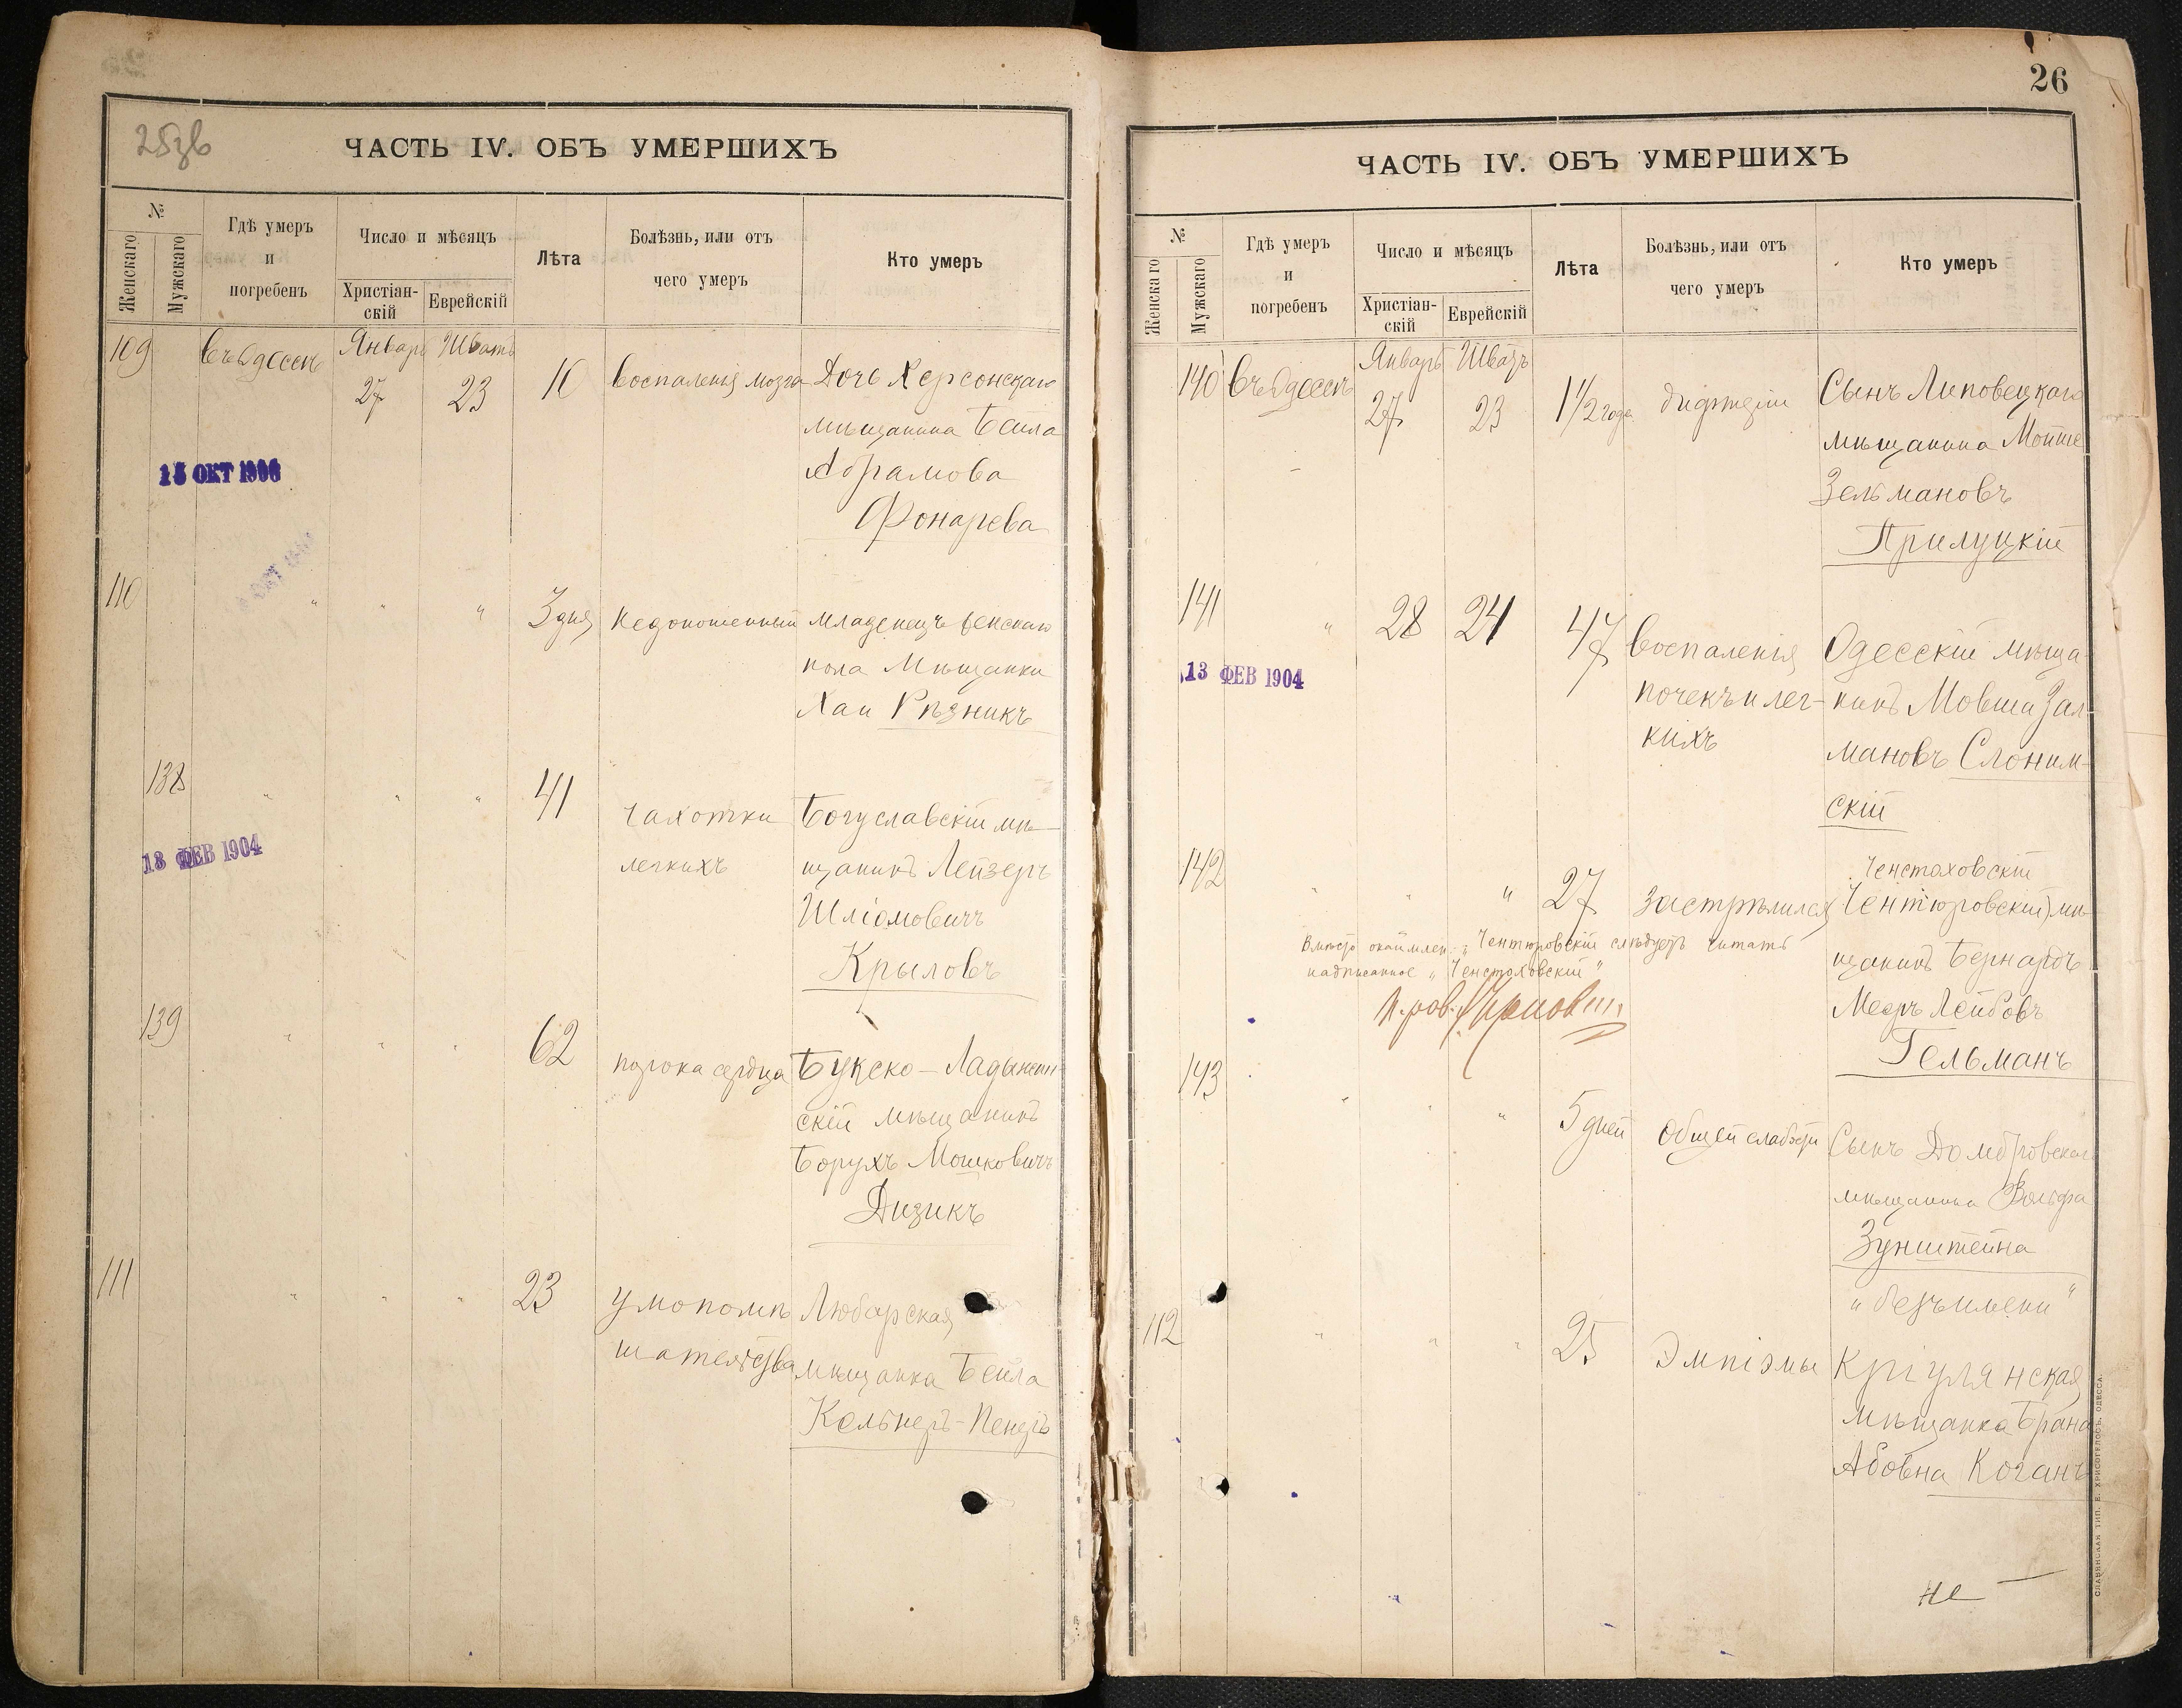 ЧАСТЬ IV. ОБЪ УМЕРШИХЪ
№
Женскаго
Мужскаго
Гдѣ умеръ
и
погребенъ
Число и мѣсяцъ
Христіан-
скій
Еврейскій
Лѣта
Болѣзнь, или отъ
чего умеръ
Кто умеръ
109 въ Одессѣ Январь Шватъ
27 23 10 воспаленія мозга Дочь Херсонскаго
мѣщанина Бейла
Абрамова
Фонарева
ОКТ
110 " " " 3 дня недоношенный младенецъ женскаго
пола Мѣщанки
Хаи Рѣзникъ
138 " " " 41 чахотки Богуславскій мѣ-
легкихъ щанинъ Лейзеръ
Шліомовичъ
Крыловъ
13 ФЕВ 1904
139 " " " 62 порока сердца
скій мѣщанинъ
Борухъ Мошковичъ
Дизикъ
111 " " " 23 умопомѣ Любарская
шательства мѣщанка Бейла
Кельнеръ-
26
ЧАСТЬ IV. ОБЪ УМЕРШИХЪ
№
Женскаго
Мужскаго
Гдѣ умеръ
и
погребенъ
Число и мѣсяцъ
Христіан-
скій
Еврейскій
Лѣта
Болѣзнь, или отъ
чего умеръ
Кто умеръ
140 въ Одессѣ Январь Шватъ
27 23 1 1/2 года Сынъ Липовецкаго
мѣщанина Мойше
Зельмановъ
Прилуцкій
141 " 28 24 47 воспаленія Одесскій мѣща-
почекъ и лег- нинъ Мовша Зал-
кихъ мановъ Слоним-
скій
13 ФЕВ 1904
142 " " " 27 застрѣлился Ченстоховскій
Чентюровскій мѣ-
щанинъ Бернардъ
Меер Лейбовъ
Гельманъ
Вмѣсто окаймлен. „Чентюровскій слѣдуетъ читать
надписанное „Ченстоховскій"
143 " " " 5 дней Общей слабости Сынъ Домбровскаго
мѣщанина Вольфа
Зунштейна
"безъ имени"
112 " " " 25 Эмпіэмы Кріулянская
мѣщанка Брана
Абовна Коганъ
СЛАВЯНСКАЯ ТИП. Е. ХРИСОГЕЛОСЪ, ОДЕССА.